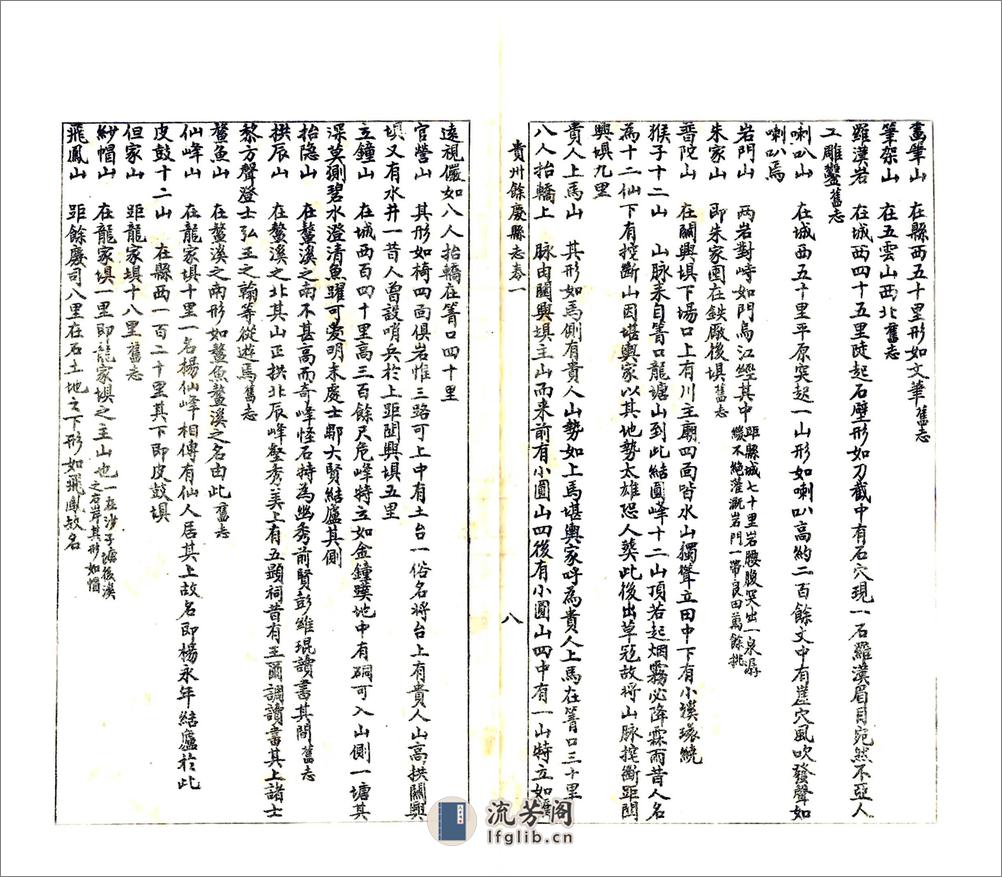 畫筆山　在縣西五十里形如文筆舊志
筆架山　在五雲山西北舊志
羅漢岩　在城西四十五里陡起石壁形如刀截中有石穴現一石羅漢眉目宛然不亞人
工雕鑿舊志
喇叭山　在城西五十里平原突起一山形如喇叭高約二百餘丈中有崖穴風吹發聲如
喇叭焉
岩門山　兩岩對峙如門烏江經其中距縣城七十里岩腰腹突出一泉潺
不絕灌溉岩門一帶良田萬餘挑
朱家山　即朱家園在鉄廠後垻舊志
普陀山　在關興垻下場口上有川主廟四面皆水山獨聳立田中下有小溪環繞
猴子十二山　山脉来自箐口龍塘山到此結圓峰十二山頂若起烟霧必降霖雨昔人名
為十二仙下有挖斷山因堪輿家以其地勢太雄恐人葬此後出草冦故將山脉挖斷距関
興垻九里
貴人上馬山　其形如馬側有貴人山勢如上馬堪輿家呼為貴人上馬在箐口三十里
八人抬轎上　脉由関興垻主山而来前有小圓山四後有小圓山四中有一山特立如
貴州餘慶縣志卷一
八
遠視儼如八人抬轎在箐口四十里
官營山　其形如椅四面俱岩惟三路可上中有土台一俗名將台上有貴人山高拱關興
垻又有水井一昔人曾設哨兵於上距関興垻五里
立鐘山　在城西百四十里高三百餘尺危峰特立如金鐘撲地中有硐可入山側一塘其
深莫測碧水澄清魚躍可愛明末處士鄭大賢結廬其側
抬隐山　在鰲溪之南不甚高而奇峰怪石特為幽秀前賢彭維琨讀書其間舊志
拱辰山　在鰲溪之北其山正拱北辰峰壑秀美上有五顯祠昔有王爾調讀書其上諸士
黎方聲澄士弘王之翰等從遊焉舊志
鰲魚山　在鰲溪之南形如鰲魚鰲溪之名由此舊志
仙峰山　在龍家垻十里一名楊仙峰相傳有仙人居其上故名即楊永年結廬於此
皮鼓十二山　在縣西一百二十里其下即皮鼓垻
但家山　距龍家垻十八里舊志
紗帽山　在龍家垻一里即龍家垻之主山也一在沙子塘後溪
之右岸其形如帽
飛鳳山　距餘慶司八里在石土地之下形如飛鳳故名
流芳阁
lfglib.cn